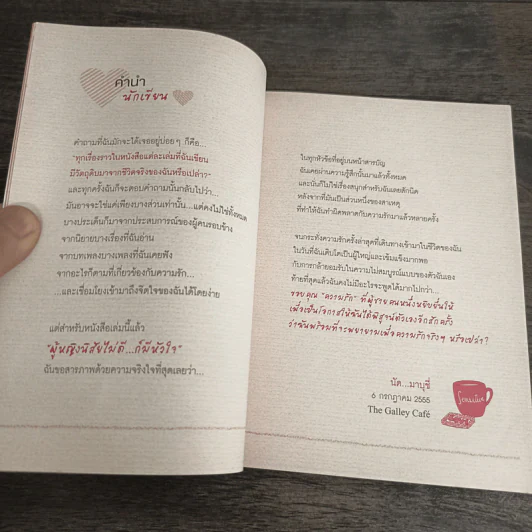 คำนำ
นักเขียน
คำถามที่ฉันมักจะได้เจออยู่บ่อยๆ ก็คือ...
"ทุกเรื่องราวในหนังสือแต่ละเล่มที่ฉันเขียน
มีวัตถุดิบมาจากชีวิตจริงของฉันหรือเปล่า?"
และทุกครั้งฉันก็จะตอบคำถามนั้นกลับไปว่า...
มันอาจจะใช่แค่เพียงบางส่วนเท่านั้น...แต่คงไม่ใช่ทั้งหมด
บางประเด็นก็มาจากประสบการณ์ของผู้คนรอบข้าง
จากนิยายบางเรื่องที่ฉันอ่าน
จากบทเพลงบางเพลงที่ฉันเคยฟัง
จากอะไรก็ตามที่เกี่ยวข้องกับความรัก...
...และเชื่อมโยงเข้ามาถึงจิตใจของฉันได้โดยง่าย
แต่สำหรับหนังสือเล่มนี้แล้ว
"ผู้หญิงนิสัยไม่ดี...ก็มีหัวใจ"
ฉันขอสารภาพด้วยความจริงใจที่สุดเลยว่า...
ในทุกหัวข้อที่อยู่บนหน้าสารบัญ
ฉันเคยผ่านความรู้สึกนั้นมาแล้วทั้งหมด
และนั่นก็ไม่ใช่เรื่องสนุกสำหรับฉันเลยสักนิด
หลังจากที่มันเป็นส่วนหนึ่งของสาเหตุ
ที่ทำให้ฉันทำผิดพลาดกับความรักมาแล้วหลายครั้ง
จนกระทั่งความรักครั้งล่าสุดที่เดินทางเข้ามาในชีวิตของฉัน
ในวันที่ฉันเติบโตเป็นผู้ใหญ่และเข้มแข็งมากพอ
กับการกล้ายอมรับในความไม่สมบูรณ์แบบของตัวฉันเอง
ท้ายที่สุดแล้วฉันคงไม่มีอะไรจะพูดได้มากไปกว่า...
ขอบคุณ "ความรัก" ที่ผู้ชายคนหนึ่งหยิบยื่นให้
เพื่อเป็นโอกาสให้ฉันได้พิสูจน์ตัวเองอีกสักครั้ง
ว่าฉันพร้อมที่จะพยายามเพื่อความรักจริงๆ หรือเปล่า?
นัต...มาบุชี่
๖ กรกฎาคม 2555
The Galley Café